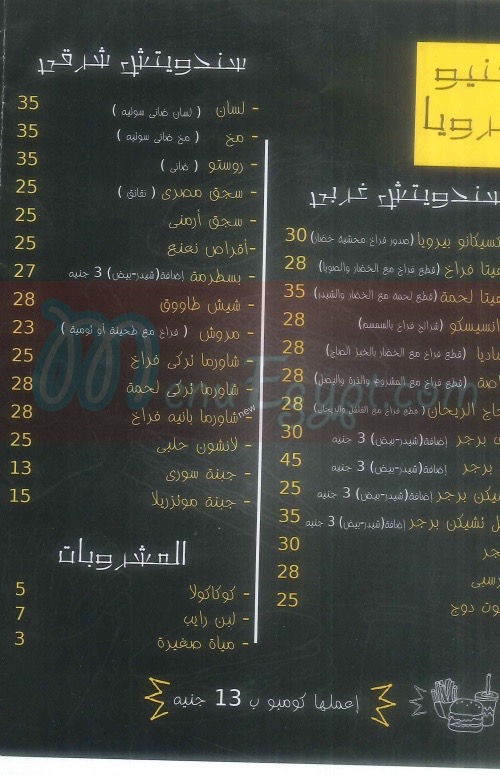 نيو
رويا
سندويتش غربى
تسيكانو بيرويا (صدور فراخ محشيه خضار) 30
يتا فراخ (قطع فراخ مع الخضار والصويا) 28
يتا لحمة (قطع لحمة مع الخضار والشيدر) 35
انسيسكو (شرائح فراخ بالسمسم) 28
ياديا (قطع فراخ مع الخضار بالخبز الصاج) 28
اصة (قطع فراخ مع المشروم والذرة والبصل) 28
اج الريحان (قطع فراخ مع الفلفل والريحان) 28
ى برجر إضافة(شيدر-بيض) 3 جنيه 30
برجر إضافة(شيدر-بيض) 3 جنيه 45
يكن برجر إضافة(شيدر-بيض) 3 جنيه 25
ل تشيكن برجر إضافة(شيدر-بيض) 3 جنيه 35
جر 30
رسى 28
وت دوج 25
سندويتش شرقى
- لسان ( لسان ضانى سوتيه ) 35
- مخ ( مخ ضانى سوتيه ) 35
- روستو ( ضانى ) 35
- سجق مصرى ( نقانق ) 25
- سجق أرمنى 25
-أقراص نعنع 25
- بسطرمة إضافة(شيدر-بيض) 3 جنيه 27
- شيش طاووق 28
- مروش ( فراخ مع طحينة أو تومية ) 23
- شاورما تركى فراخ 25
- شاورما تركى لحمة 28
- شاورما بانيه فراخ new 28
- لانشون حلبى 25
- جبنة سورى 13
- جبنة موتزريلا 15
المشروبات
- كوكاكولا 5
- لبن رايب 7
- مياة صغيرة 3
إعملها كومبو ب 13 جنيه
MenuEgypt.com